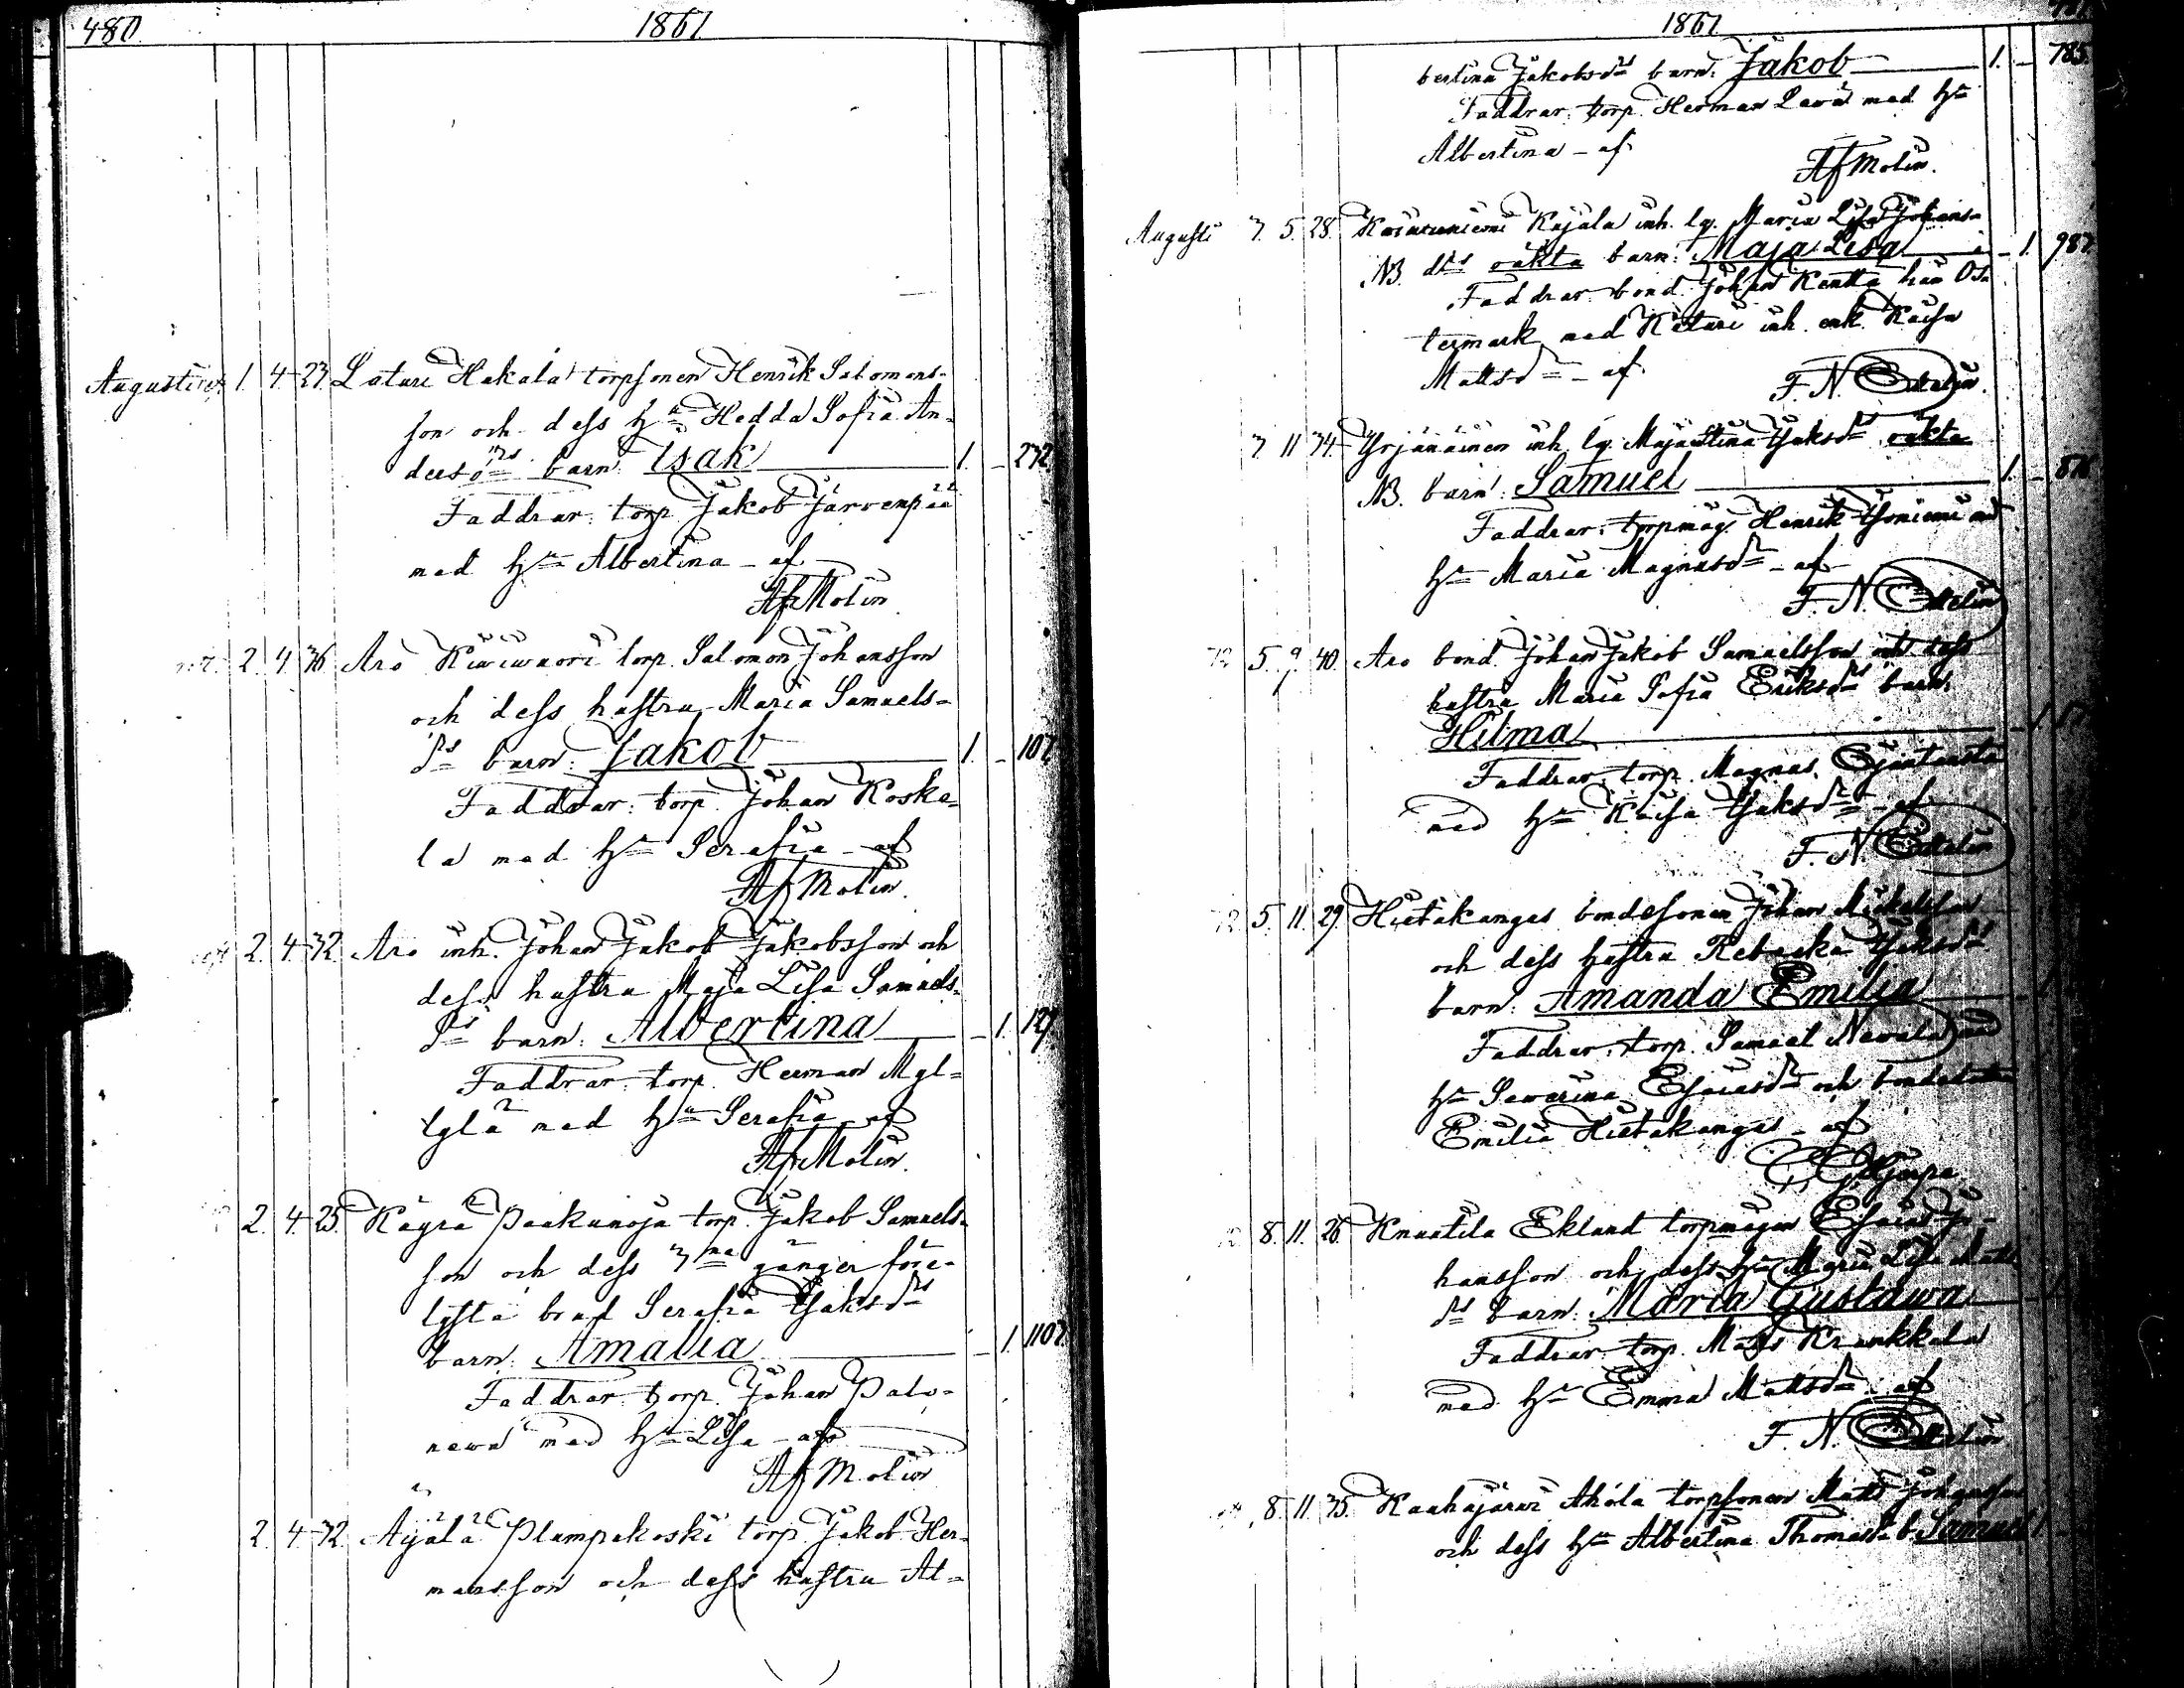 480. 1861
Augusti 1. 4. 27. Laturi Hakala torpsonen Henrik Salomons-
son och dess h:u Hedda Sofia An-
dersd:rs barn: Isak 1. _ 272.
Faddrar: torp. Jakob Järvenpää
med h:u Albertina _ af
Af Molin
2. 4. 36. Aro Kiwiwuori torp. Salomon Johansson
och dess hustru Maria Samuels-
d:rs barn: Jakob 1. _ 107.
Faddrar: torp. Johan Koske-
la med h:u Serafia _ af
Af Molin.
2. 4. 32. Aro inh. Johan Jakob Jakobsson och
dess hustru Maja Lisa Samuels-
d:rs barn: Albertina _ 1. 127.
Faddrar: torp. Herman Myl-
lylä med h:u Serafia _ af
Af Molin.
2. 4. 25. Kägrä Paakunoja torp. Jakob Samuels-
son och dess 3:ne gånger före-
lysta brud Serafia Isaksd:rs
barn: Amalia _ 1. 1107.
Faddrar: torp. Johan Palo-
newa med h:u Lisa _ af
Af Molin
2. 4. 32. Äijälä Plumpakoski torp. Jakob Her-
mansson och dess hustru Al-
1861
bertina Jakobsd:rs barn: Jakob 1. _ 785.
Faddrar: torp. Herman Lawa med h:u
Albertina _ af
Af Molin.
Augusti 7. 5. 28. Kajala inh. lg. Maria Lisa Johans-
NB. d:rs oäkta barn: Maja Lisa _ 1. 987.
Faddrar: bond. Johan Kentta från Ös-
termark med Katari inh. enk. Kaisa
Mattsd:r _ af
F. N. Estelin.
7. 11. 34. Yrjänäinen inh. lg. Majastina Isaksd:rs oäkta
NB. barn: Samuel 1. _
Faddrar: torpmåg. Henrik Isoniemi med
h:u Maria Magnusd:r _ af
F. N. Estelin
5. 9. 40. Aro bond. Johan Jakob Samuelsson och dess
hustru Maria Sofia Eriksd:rs barn:
Hilma
Faddrar: torp. Magnus
med h:u Kaisa Isaksd:r _ af
F. N. Estelin
5. 11. 29. Hietakangas bondesonen Johan Michelsson
och dess hustru Rebecka Isaksd:rs
barn: Amanda Emilia
Faddrar: torp. Samuel Newala med
h:u Sewerina Esaiasd:r och bondedottern
Emilia Hietakangas _ af
8. 11. 26. Knuutila Eklund torpmågen Esaias Jo-
hansson och dess h:u Maria Lisa Matts-
d:rs barn: Maria Gustawa
Faddrar: torp. Matts Krankkala
med h:u Emma Mattsd:r _ af
F. N. Estelin
8. 11. 35. Kaahajärwi Ahola torpsonen Matts Johansson
och dess h:u Albertina Thomasd:rs b. Samuel 1.